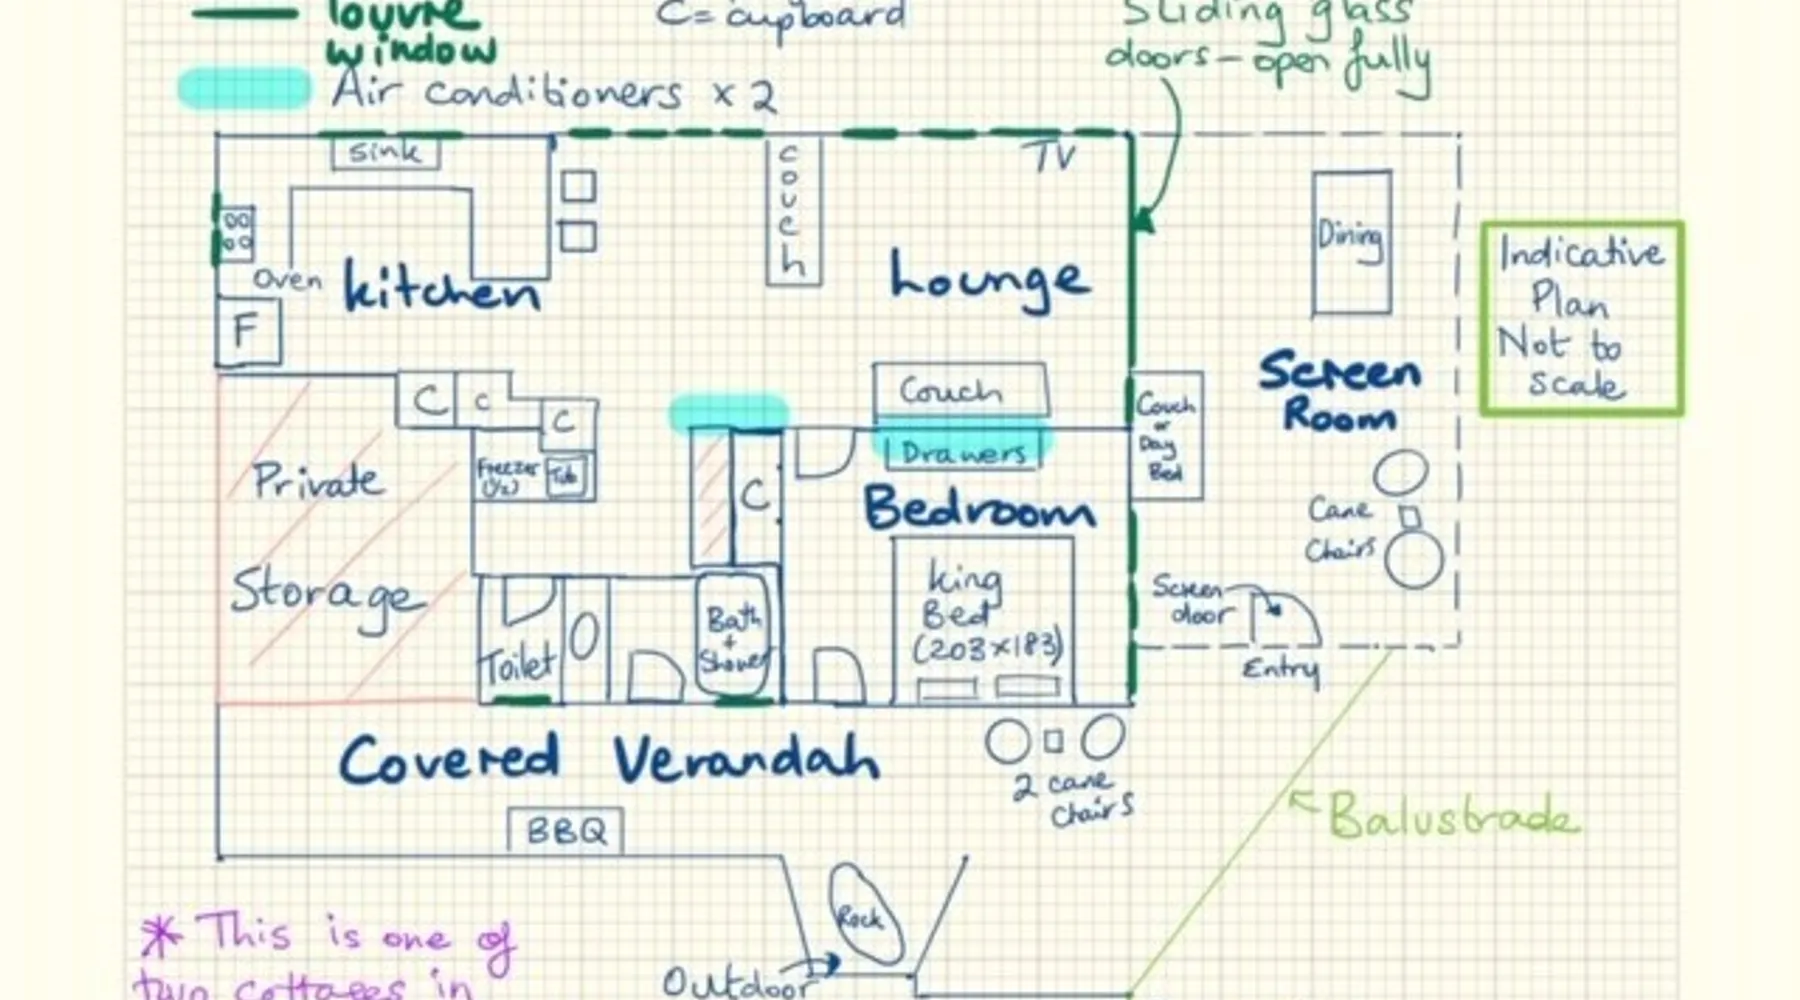 louvre
window
C = cupboard
Sliding glass
doors - open fully
Air conditioners x 2
sink
couch
TV
Dining
Oven
kitchen
Lounge
F
Indicative
Plan
Not to
scale
Screen
Room
C
C
C
Couch
Drawers
Couch
or
Day
Bed
Private
Storage
Freezer
(1/2)
Tub
C
Bedroom
King
Bed
(203x183)
Cane
Chairs
Screen
door
Entry
Toilet
Bath
+
Shower
Covered Verandah
2 cane
chairs
BBQ
Balustrade
Rock
Outdoor
* This is one of
two cottages in